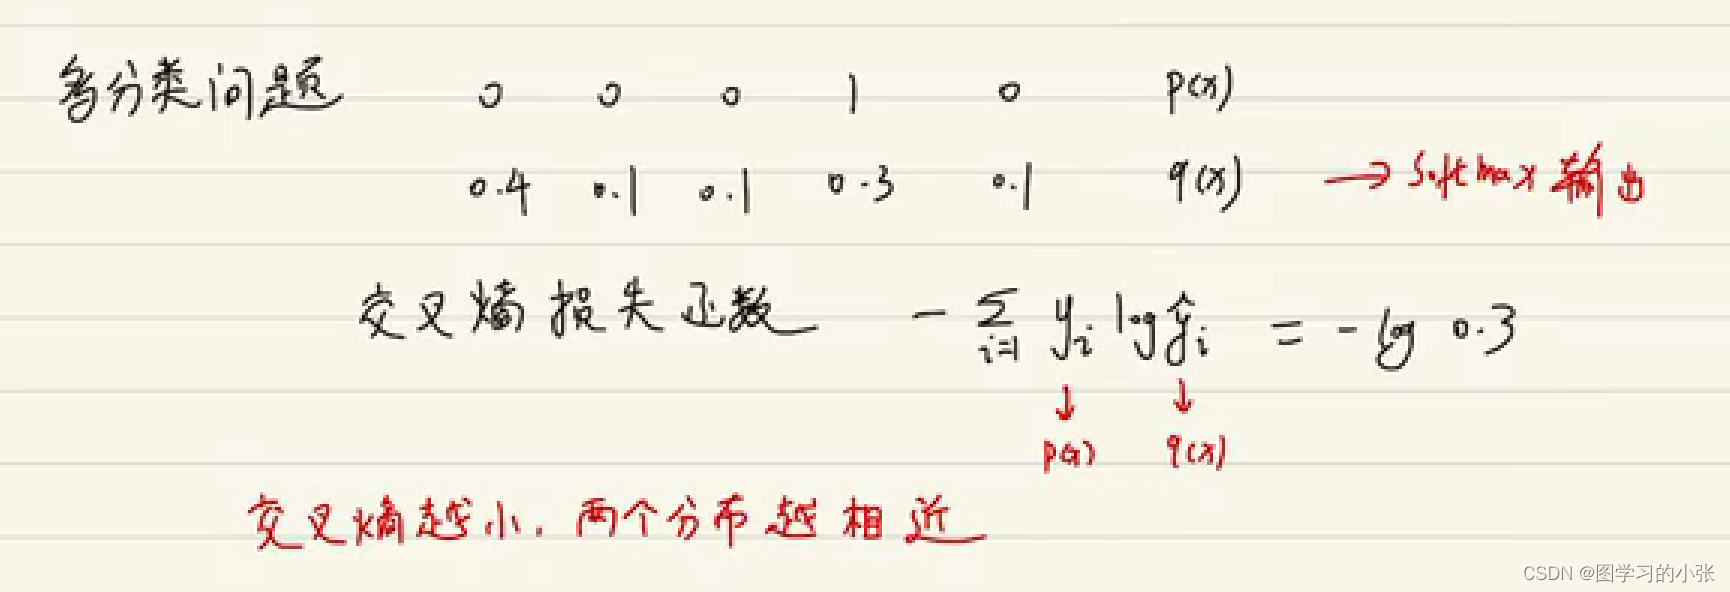 多分类问题 0 0 0 1 0 p(x)
0.4 0.1 0.1 0.3 0.1 q(x) → Softmax 输出
交叉熵损失函数 - ∑ i=1 yi log ŷi = - log 0.3
↓ ↓
p(x) q(x)
交叉熵越小. 两个分布越相近
CSDN @图学习的小张